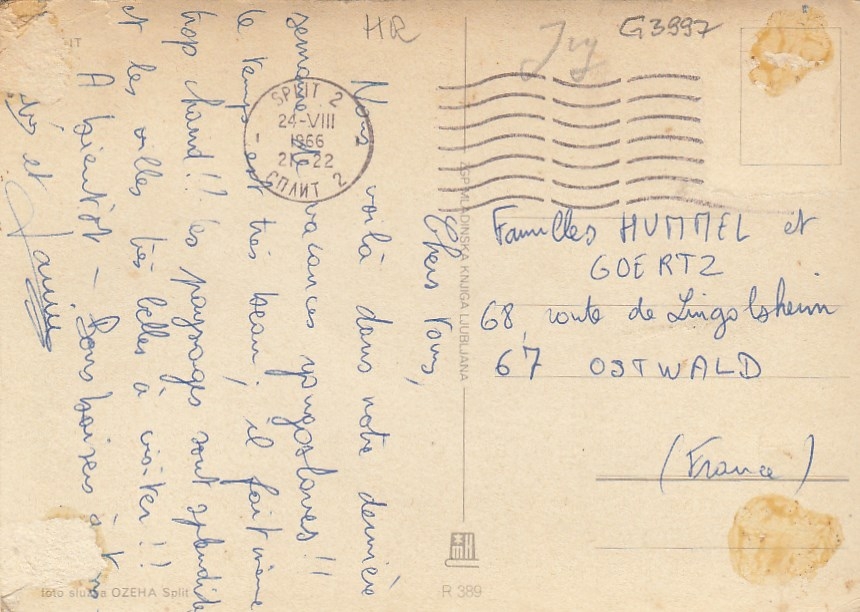 HR
G3997
SPLIT 2
24-VIII
1966
21-22
СПЛИТ 2
Chers Vous,
Nous voilà dans notre dernière
semaine de vacances yougoslaves!!
Le temps est très beau; il fait même
trop chaud!! Les paysages sont splendide
et les villes très belles à visiter!!
A bientôt - Bons baisers à
et
ZGP MLADINSKA KNJIGA LJUBLJANA
Familles HUMMEL et
GOERTZ
68, route de Lingolsheim
67 OSTWALD
(France)
foto služba OZEHA Split
R 389